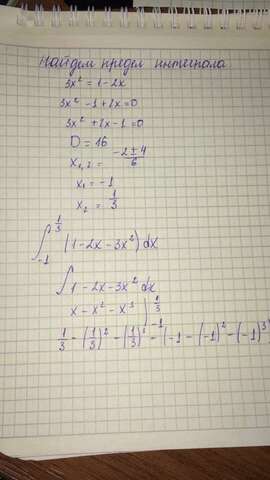 Найдем предел интеграла
3x² = 1-2x
3x² -1+2x=0
3x² +2x-1=0
D = 16
x₁,₂ = -2±4/6
x₁ = -1
x₂ = 1/3
∫₋₁^(1/3) (1-2x-3x²)dx
∫ 1-2x-3x² dx
x - x² - x³ |₋₁^(1/3)
1/3 - (1/3)² - (1/3)³ - (-1 - (-1)² - (-1)³